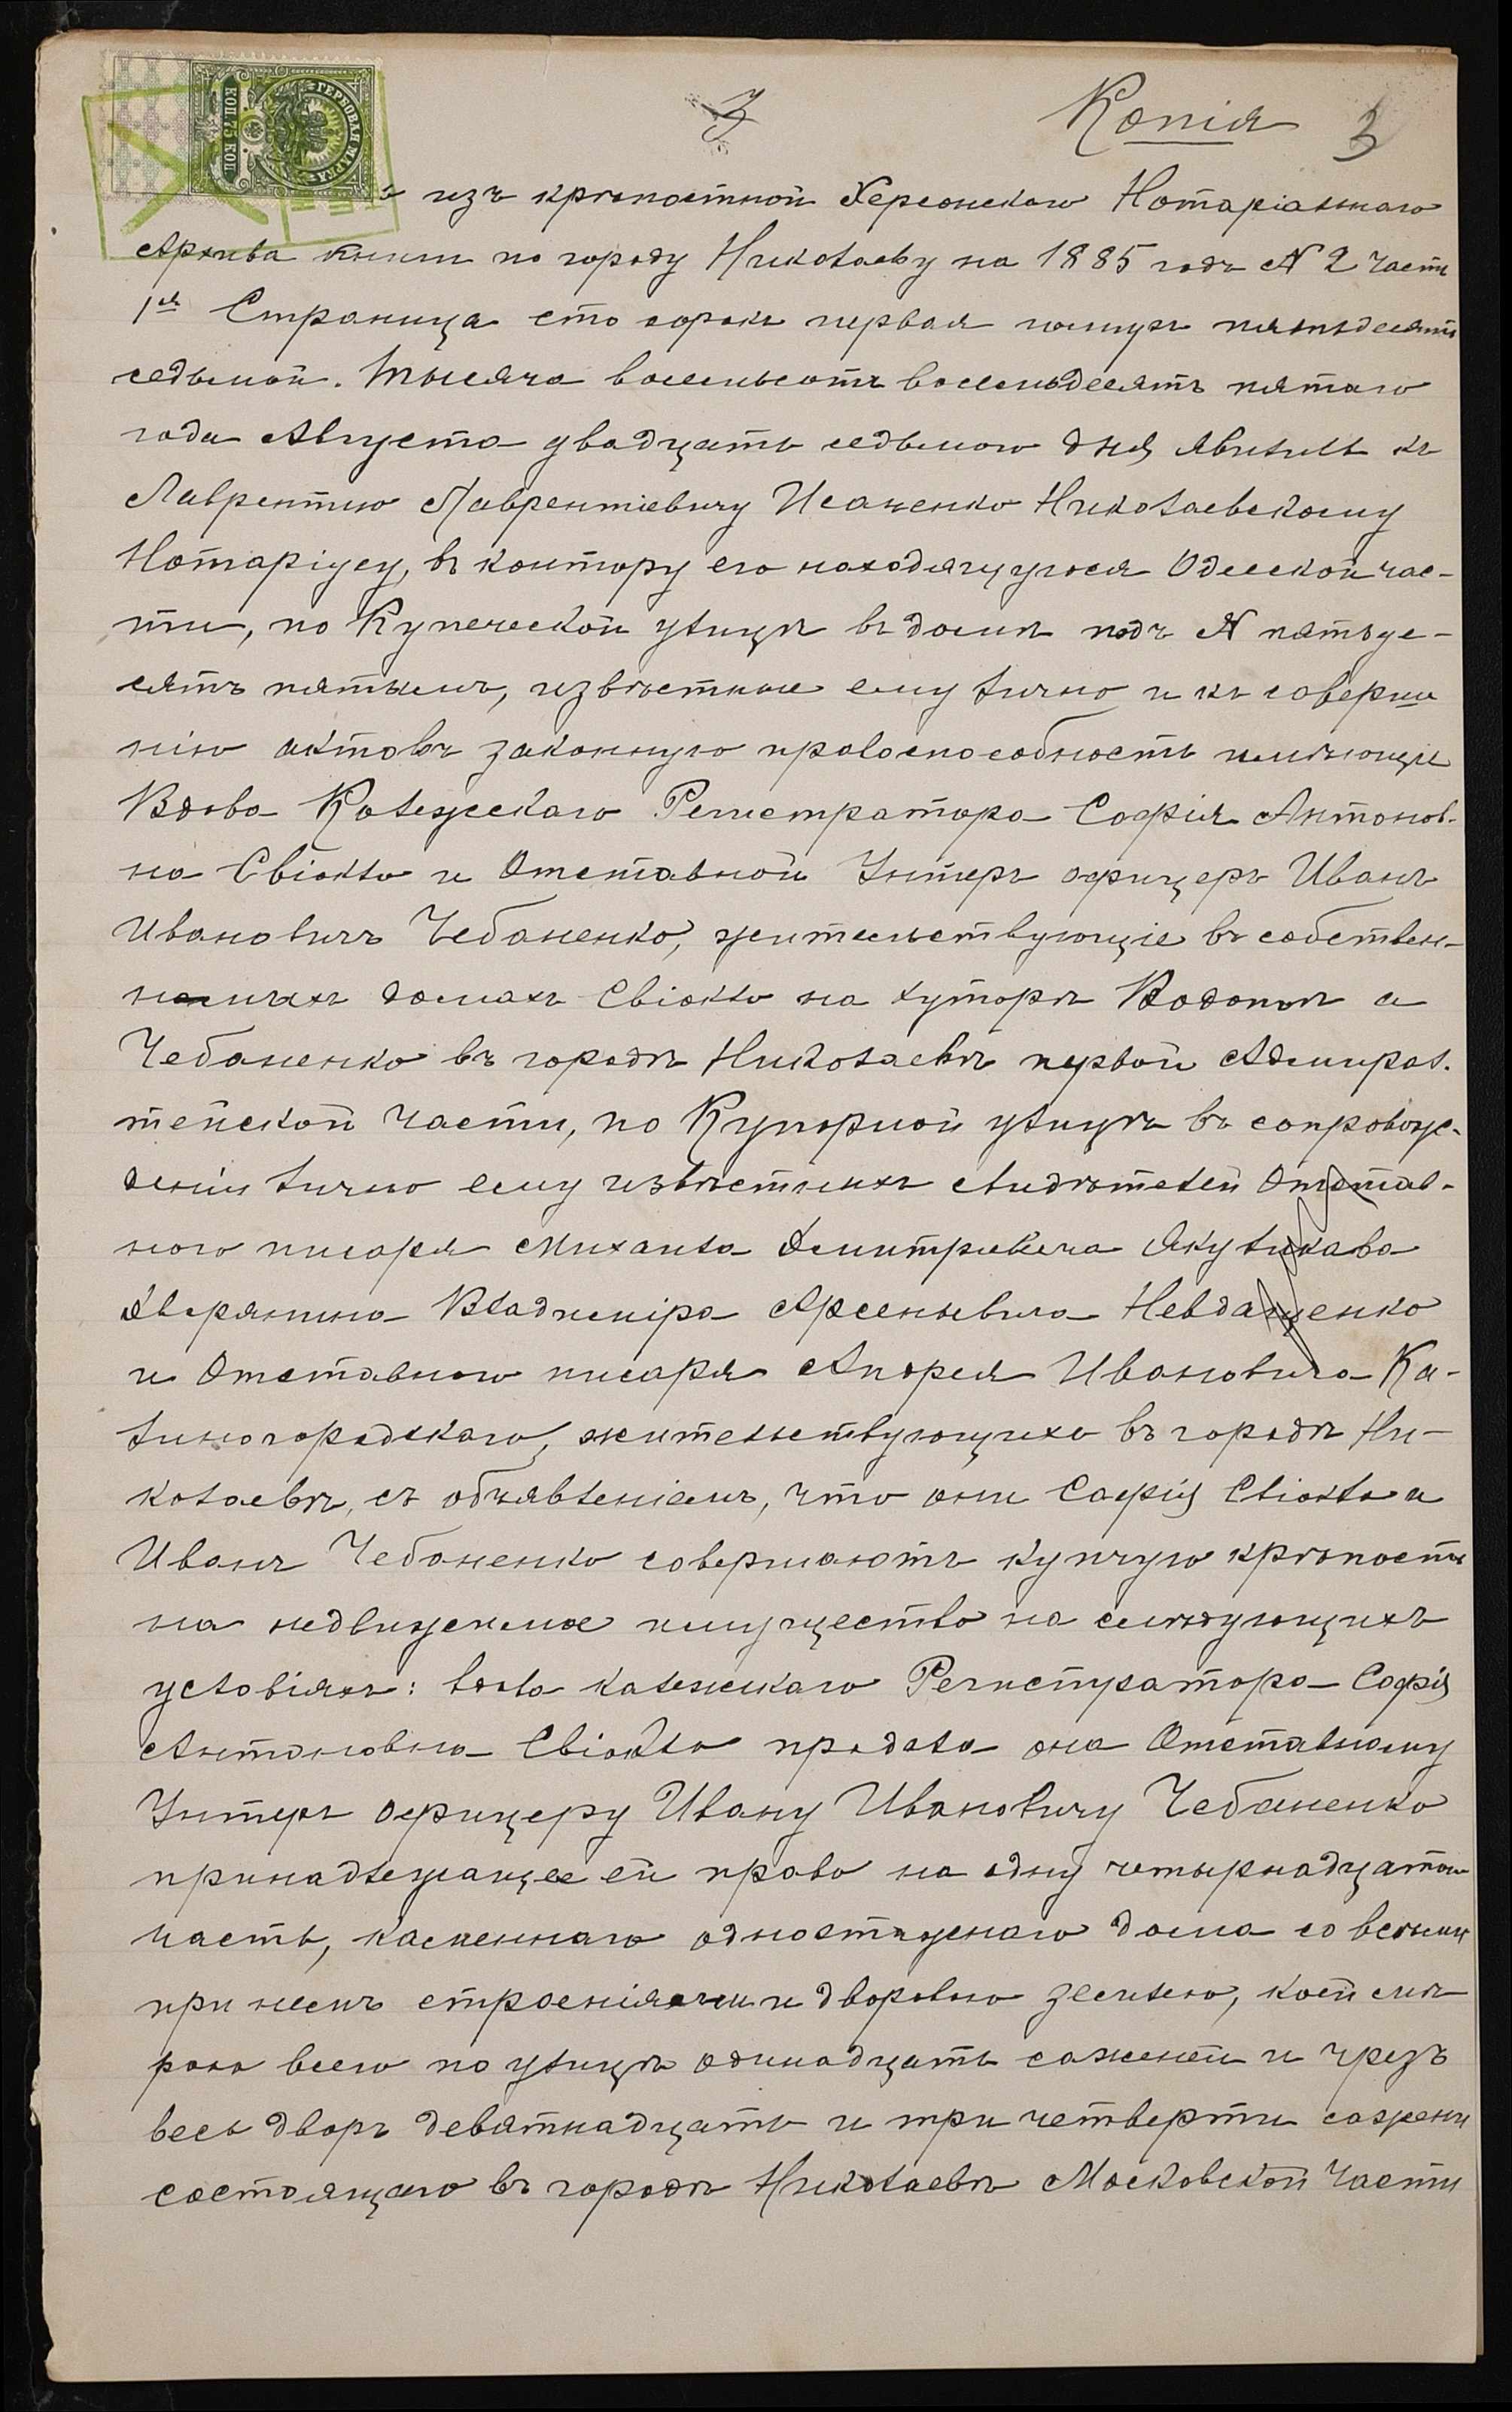 Копія 3
3
ГЕРБОВАЯ МАРКА
КОП. 75 КОП.
изъ крѣпостной Херсонскаго Нотаріальнаго
Архива книги по городу Николаеву на 1885 годъ № 2 часть
1я Страница сто сорокъ первая нумеръ пятьдесятъ
седьмой. Тысяча восемьсотъ восемьдесятъ пятаго
года Августа двадцать седьмого дня явились къ
Лаврентию Лаврентіевичу Исаченко Николаевскому
Нотаріусу, въ контору его находящуюся Одесской час-
ти, по Купеческой улицѣ въ домѣ подъ № пятьде-
сятъ пятымъ, извѣстные ему лично и къ соверше
нію актовъ законную правоспособность имѣющіе
Вдова Колежскаго Регистратора Софія Антонов-
на и Отставной Унтеръ офицеръ Иванъ
Ивановичъ Чебаненко, жительствующіе въ собствен-
ныхъ домахъ на хуторѣ Водопой а
Чебаненко въ городѣ Николаевѣ первой Адмирал-
тейской части, по Купорной улицѣ въ сопровож-
деніи лично ему извѣстныхъ свидѣтелей Отстав-
ного писаря Михаила Дмитриевича
Дворянина Владиміра Арсеньевича Невдащенко
и Отставного писаря Андрея Ивановича Ка-
линоградскаго, жительствующихъ въ городѣ Ни-
колаевѣ, съ объявленіемъ, что они Софія а
Иванъ Чебаненко совершаютъ купчую крѣпость
на недвижимое имущество на слѣдующихъ
условіяхъ: вдова колежскаго Регистратора Софія
Антоновна продала она Отставному
Унтеръ офицеру Ивану Ивановичу Чебаненко
принадлежащее ей право на одну четырнадцатою
часть, каменнаго одноэтажнаго дома со всѣми
при немъ строеніями и дворовою землею, коей мѣ
рою всего по улицѣ одинадцать саженей и чрезъ
весь дворъ девятнадцать и три четверти сажени
состоящаго въ городѣ Николаевѣ Московской части